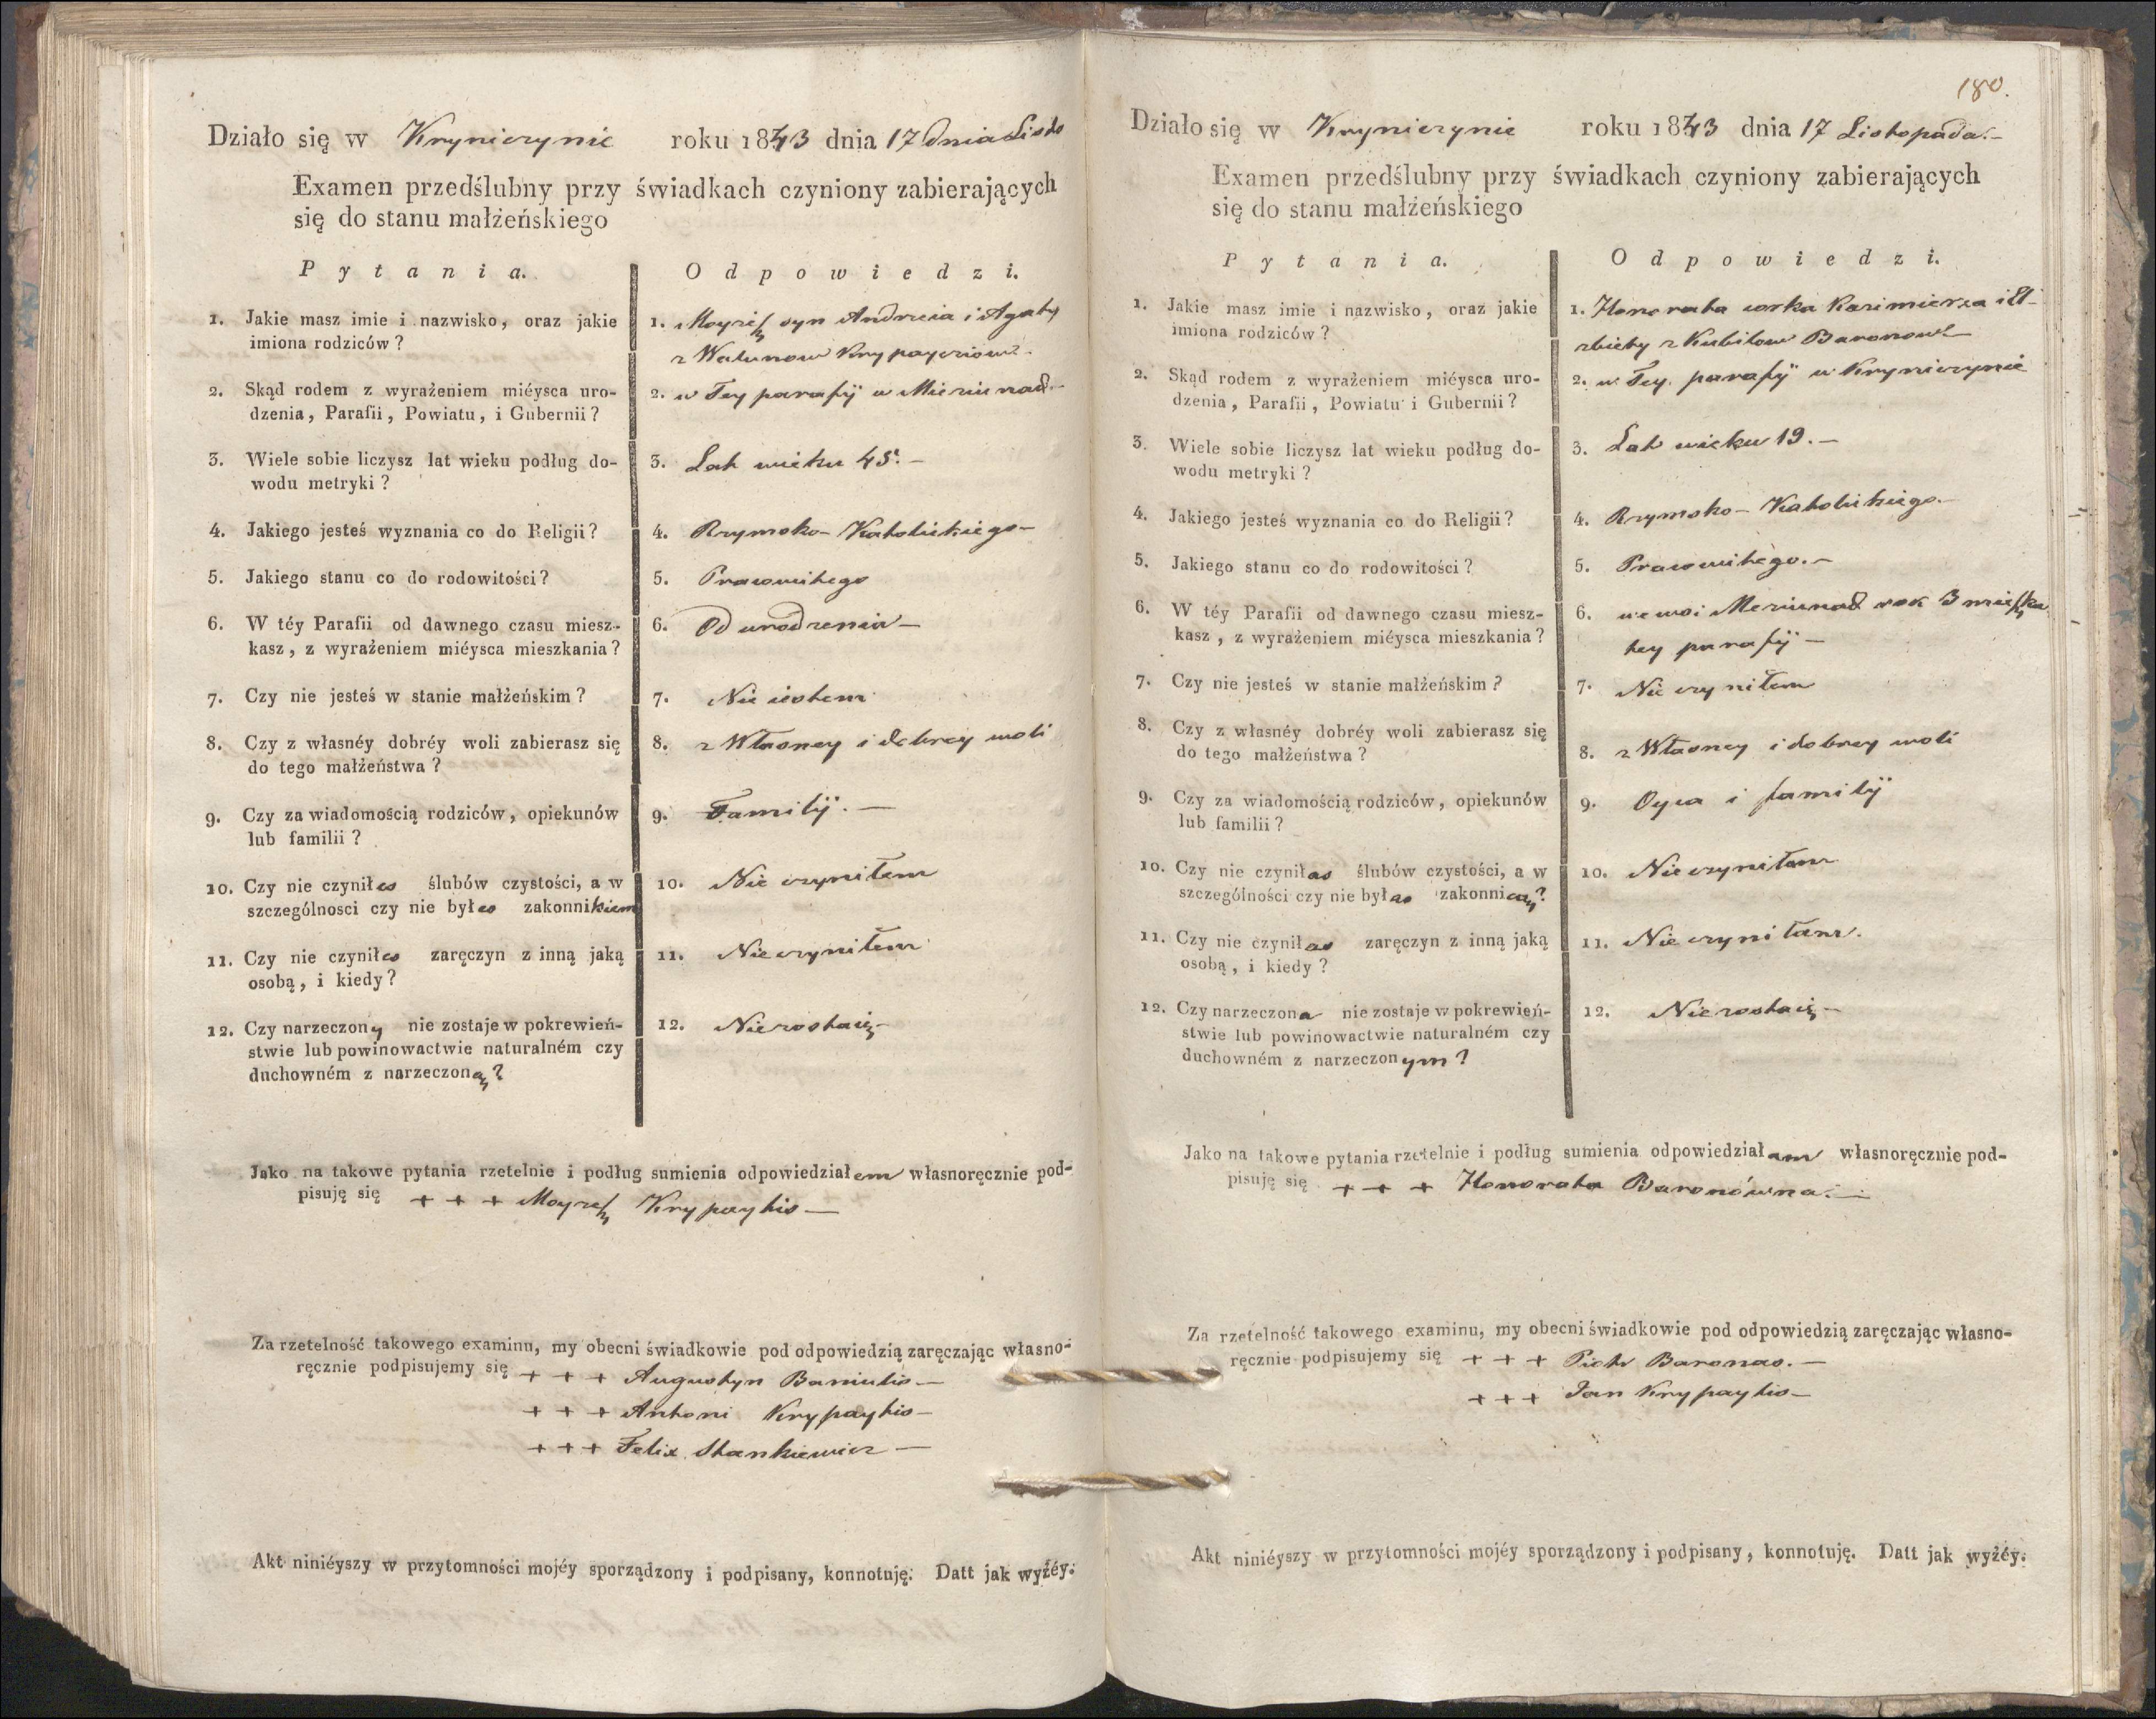 Działo się w Kryniczynie roku 1843 dnia 17 dnia Listo
Examen przedślubny przy świadkach czyniony zabierających
się do stanu małżeńskiego
Pytania.
Odpowiedzi.
1. Jakie masz imie i nazwisko, oraz jakie
imiona rodziców?
1. Moyżesz syn Andrzeia i Agaty
z Walunow Krypayciow
2. Skąd rodem z wyrażeniem miéysca uro-
dzenia, Parafii, Powiatu, i Gubernii?
2. w Tey parafij w
3. Wiele sobie liczysz lat wieku podług do-
wodu metryki?
3. Lat wieku 45. –
4. Jakiego jesteś wyznania co do Religii?
4. Rzymsko-Katolickiego –
5. Jakiego stanu co do rodowitości?
5. Pracowitego
6. W téy Parafii od dawnego czasu miesz-
kasz, z wyrażeniem miéysca mieszkania?
6. Od urodzenia –
7. Czy nie jesteś w stanie małżeńskim?
7. Nie iestem
8. Czy z własnéy dobréy woli zabierasz się
do tego małżeństwa?
8. z Własney i dobrey woli
9. Czy za wiadomością rodziców, opiekunów
lub familii?
9. Familij. –
10. Czy nie czyniłes ślubów czystości, a w
szczególnosci czy nie byłes zakonnikiem
10. Nie czyniłem
11. Czy nie czyniłes zaręczyn z inną jaką
osobą, i kiedy?
11. Nie czyniłem
12. Czy narzeczony nie zostaje w pokrewień-
stwie lub powinowactwie naturalném czy
duchowném z narzeczoną?
12. Nie zostaię –
Jako na takowe pytania rzetelnie i podług sumienia odpowiedziałem własnoręcznie pod-
pisuję się + + + Moyżesz Krypaytis –
Za rzetelność takowego examinu, my obecni świadkowie pod odpowiedzią zaręczając własno-
ręcznie podpisujemy się + + + Augustyn Baniulis –
+ + + Antoni Krypaytis –
+ + + Felix Stankiewicz –
Akt niniéyszy w przytomności mojéy sporządzony i podpisany, konnotuję. Datt jak wyźéy.
180.
Działo się w Kryniczynie roku 1843 dnia 17 Listopada. –
Examen przedślubny przy świadkach czyniony zabierających
się do stanu małżeńskiego
Pytania.
Odpowiedzi.
1. Jakie masz imie i nazwisko, oraz jakie
imiona rodziców?
1. Honorata corka Kazimierza i El-
zbiety z Kubilow Baronow
2. Skąd rodem z wyrażeniem miéysca uro-
dzenia, Parafii, Powiatu i Gubernii?
2. w Tey parafij w Kryniczynie
3. Wiele sobie liczysz lat wieku podług do-
wodu metryki?
3. Lat wieku 19. –
4. Jakiego jesteś wyznania co do Religii?
4. Rzymsko-Katolickiego. –
5. Jakiego stanu co do rodowitości?
5. Pracowitego. –
6. W téy Parafii od dawnego czasu miesz-
kasz, z wyrażeniem miéysca mieszkania?
6. we wsi rok 3 mieszka
tey parafij –
7. Czy nie jesteś w stanie małżeńskim?
7. Nie czyniłem
8. Czy z własnéy dobréy woli zabierasz się
do tego małżeństwa?
8. z Własney i dobrey woli
9. Czy za wiadomością rodziców, opiekunów
lub familii?
9. Oyca i familij
10. Czy nie czyniłas ślubów czystości, a w
szczególności czy nie byłas zakonnicą?
10. Nie czyniłam
11. Czy nie czyniłas zaręczyn z inną jaką
osobą, i kiedy?
11. Nie czyniłam.
12. Czy narzeczona nie zostaje w pokrewień-
stwie lub powinowactwie naturalném czy
duchowném z narzeczonym?
12. Nie zostaię –
Jako na takowe pytania rzetelnie i podług sumienia odpowiedziałam własnoręcznie pod-
pisuję się + + + Honorata Baronówna. –
Za rzetelność takowego examinu, my obecni świadkowie pod odpowiedzią zaręczając własno-
ręcznie podpisujemy się + + + Piotr Baronas. –
+ + + Jan Krypaytis –
Akt niniéyszy w przytomności mojéy sporządzony i podpisany, konnotuję. Datt jak wyżéy.